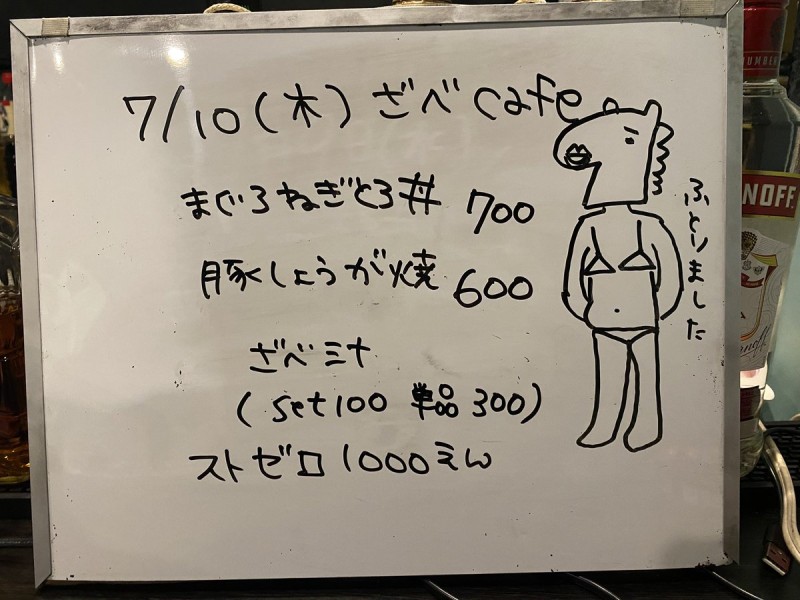 7/10(木)ざべcafe
まぐろねぎとろ丼 700
豚しょうが焼 600
ざべミナ
(set100 単品300)
ストゼロ1000えん
ふとりました
NOFF